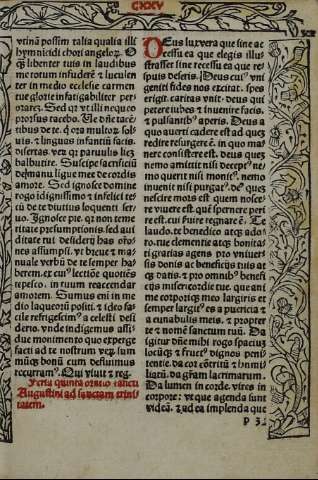 CXXV
utinā possem talia qualia illi
hymnidici chori angeloꝝ. O
ꝙ libenter tuis in laudibus
me totum infuderē ⁊ luculen
ter in medio ecclesie carmen
tue glorie infatigabiliter per
orarez. Sed qꝛ ut illi nequeo
prorsus tacebo. Ue dñe tacē-
tibus de te. q̄ ora multoꝝ sol-
uis. ⁊ linguas infantiū facis.
disertas. vez qꝛ paruulis licz
balbutire. Suscipe sacrificiū
qd manu ligue mee de cordis
amore. Sed ignosce domine
rogo idignissimo ⁊ infelici te-
tū de te diutius loquenti ser-
uo. Ignosce pie. qꝛ non teme
ritate presumptionis. sed aui
ditate tui desiderij has orō-
nes assumpsi. vt breue ⁊ ma-
nuale verbū de te semper ha-
berem. ex cuiꝰ lectiōe quotiēs
tepesco. in tuum reaccendar
amorem. Sumus eni in me
dio laqueorū positi. ⁊ ideo fa-
cile refrigescimꝰ a celesti desi
derio. vnde indigemus assi-
due monimento quo experge
facti ad te nostrum veꝝ sum
mūqꝫ bonū cum defluimus
recurramꝰ. Qui viuit ⁊ reg.
Feria quinta oratio sancti
Augustini ad sanctam trini
tatem.
DEus lux vera que sine ac
cessu ea que elegis illu-
strasser sine recessu ea que re-
spuis deseris. Deus cuiꝰ vni
geniti fides nos excitat. spes
erigit. caritas vnit. deus qui
petere iubes ⁊ inuenire facis.
⁊ pulsantibꝰ aperis. Deus a
quo auerti cadere est ad quez
redire resurgere ē. in quo ma
nere consistere est. deus quez
nemo amittit nisi deceptꝰ ne-
mo querit nisi monitꝰ. nemo
inuenit nisi purgatꝰ. deꝰ quez
nescire mors est quem nosce-
re viuere est. quē spernere peri
re est. cui fuire regnare ē. Te
laudo. te benedico atqꝫ ado-
ro. tue clementie atqꝫ bonita-
ti gratias agens pro vniuer-
sis bonis ac beneficijs tuis at
qꝫ datis. ⁊ pro omnibꝰ benefi
cijs misericordie tue. que ani
me corporiqꝫ meo largiris et
semper largitꝰ es a puericia et
a cunabulis meis. ⁊ propter
te ⁊ nomē sanctum tuū. Da
igitur dn̄e mihi rogo spaciuz
locūqꝫ ⁊ fructꝰ dignos peni-
tentie. da cor cōtritū ⁊ humi
latū. da grām lacrimarum.
Da lumen in corde. vires in
corpore: vt que agenda sunt
videā. ⁊ ad ea implenda que
P 3